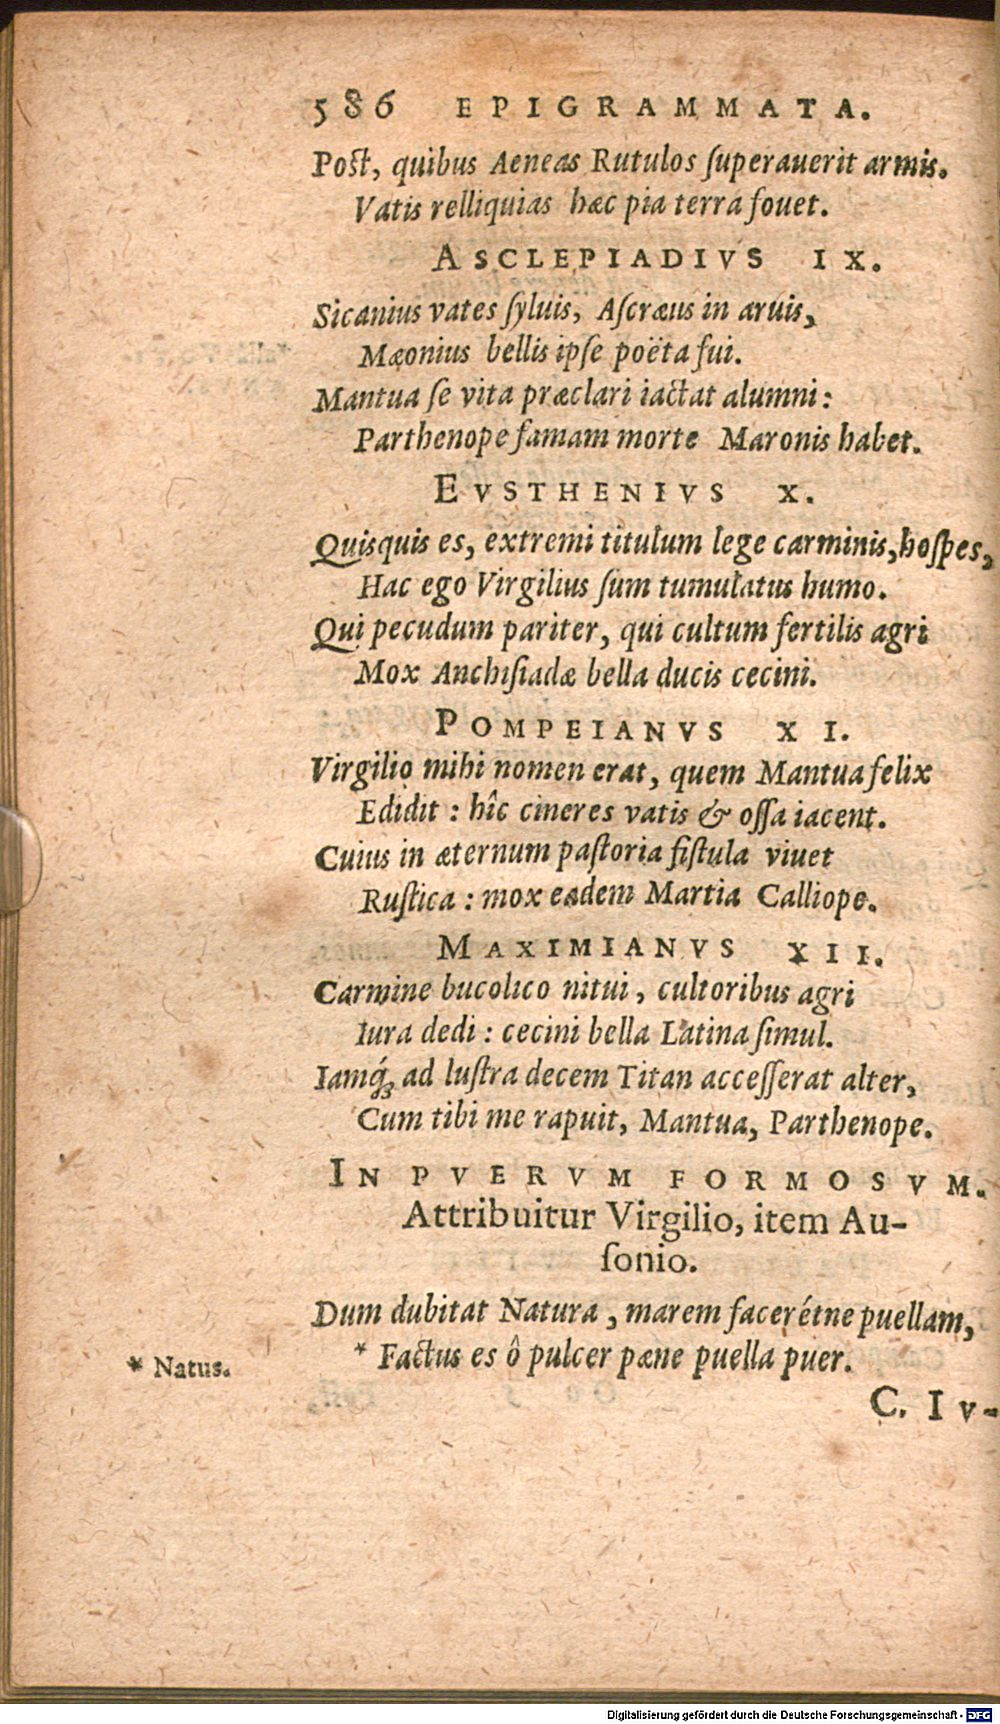 586 EPIGRAMMATA.
Post, quibus Aeneas Rutulos ſuperauerit armis.
Vatis relliquias hæc pia terra fouet.
ASCLEPIADIVS IX.
Sicanius vates ſyluis, Aſcræus in aruis,
Mæonius bellis ipſe poëta fui.
Mantua ſe vita præclari iactat alumni:
Parthenope famam morte Maronis habet.
EVSTHENIVS X.
Quisquis es, extremi titulum lege carminis, hoſpes,
Hac ego Virgilius ſum tumulatus humo.
Qui pecudum pariter, qui cultum fertilis agri
Mox Anchiſiadæ bella ducis cecini.
POMPEIANVS XI.
Virgilio mihi nomen erat, quem Mantua felix
Edidit: hîc cineres vatis & oſſa iacent.
Cuius in æternum paſtoria fiſtula viuet
Ruſtica: mox eadem Martia Calliope.
MAXIMIANVS XII.
Carmine bucolico nitui, cultoribus agri
Iura dedi: cecini bella Latina ſimul.
Iamq́ꝫ ad luſtra decem Titan acceſſerat alter,
Cum tibi me rapuit, Mantua, Parthenope.
IN PVERVM FORMOSVM.
Attribuitur Virgilio, item Au-
ſonio.
Dum dubitat Natura, marem facerétne puellam,
* Factus es ô pulcer pæne puella puer.
* Natus.
C. Iv-
Digitalisierung gefördert durch die Deutsche Forschungsgemeinschaft - DFG